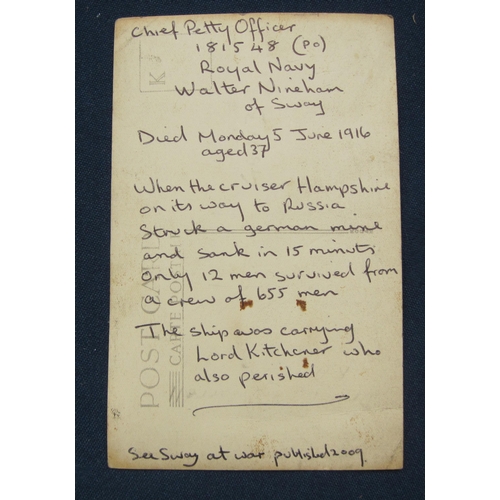 Chief Petty Officer
181548 (PO)
Royal Navy
Walter Nineham
of Sway
Died Monday 5 June 1916
aged 37
When the cruiser Hampshire
on its way to Russia
Struck a german mine
and sank in 15 minuts
only 12 men survived from
a crew of 655 men
The ship was carrying
Lord Kitchener who
also perished
See Sway at war published 2009
POST CARD
CARTE POSTALE
K